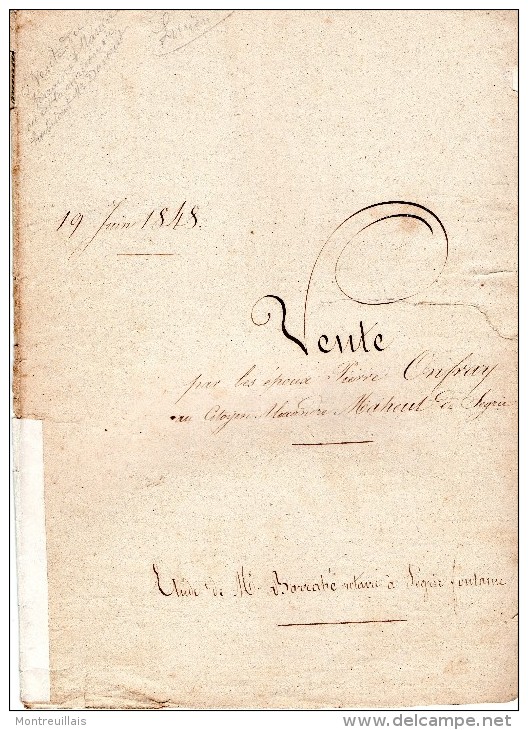 Vente de
19 Juin 1848.
Vente
par les époux Pierre Onfray
au Citoyen Alexandre Maheut de Segrie
Etude de Me. Barrabé notaire à Ségrie fontaine
Montreuillais
delcampe.net